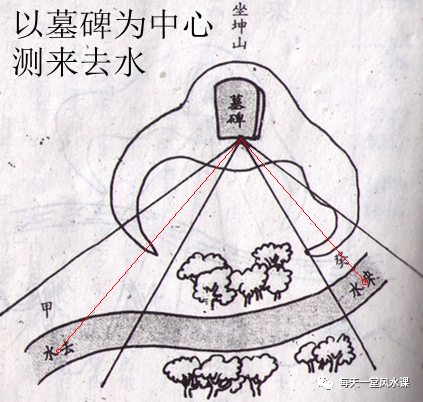 以墓碑为中心
测来去水
坐坤山
墓碑
癸
水来
甲
水去
每天一堂风水课